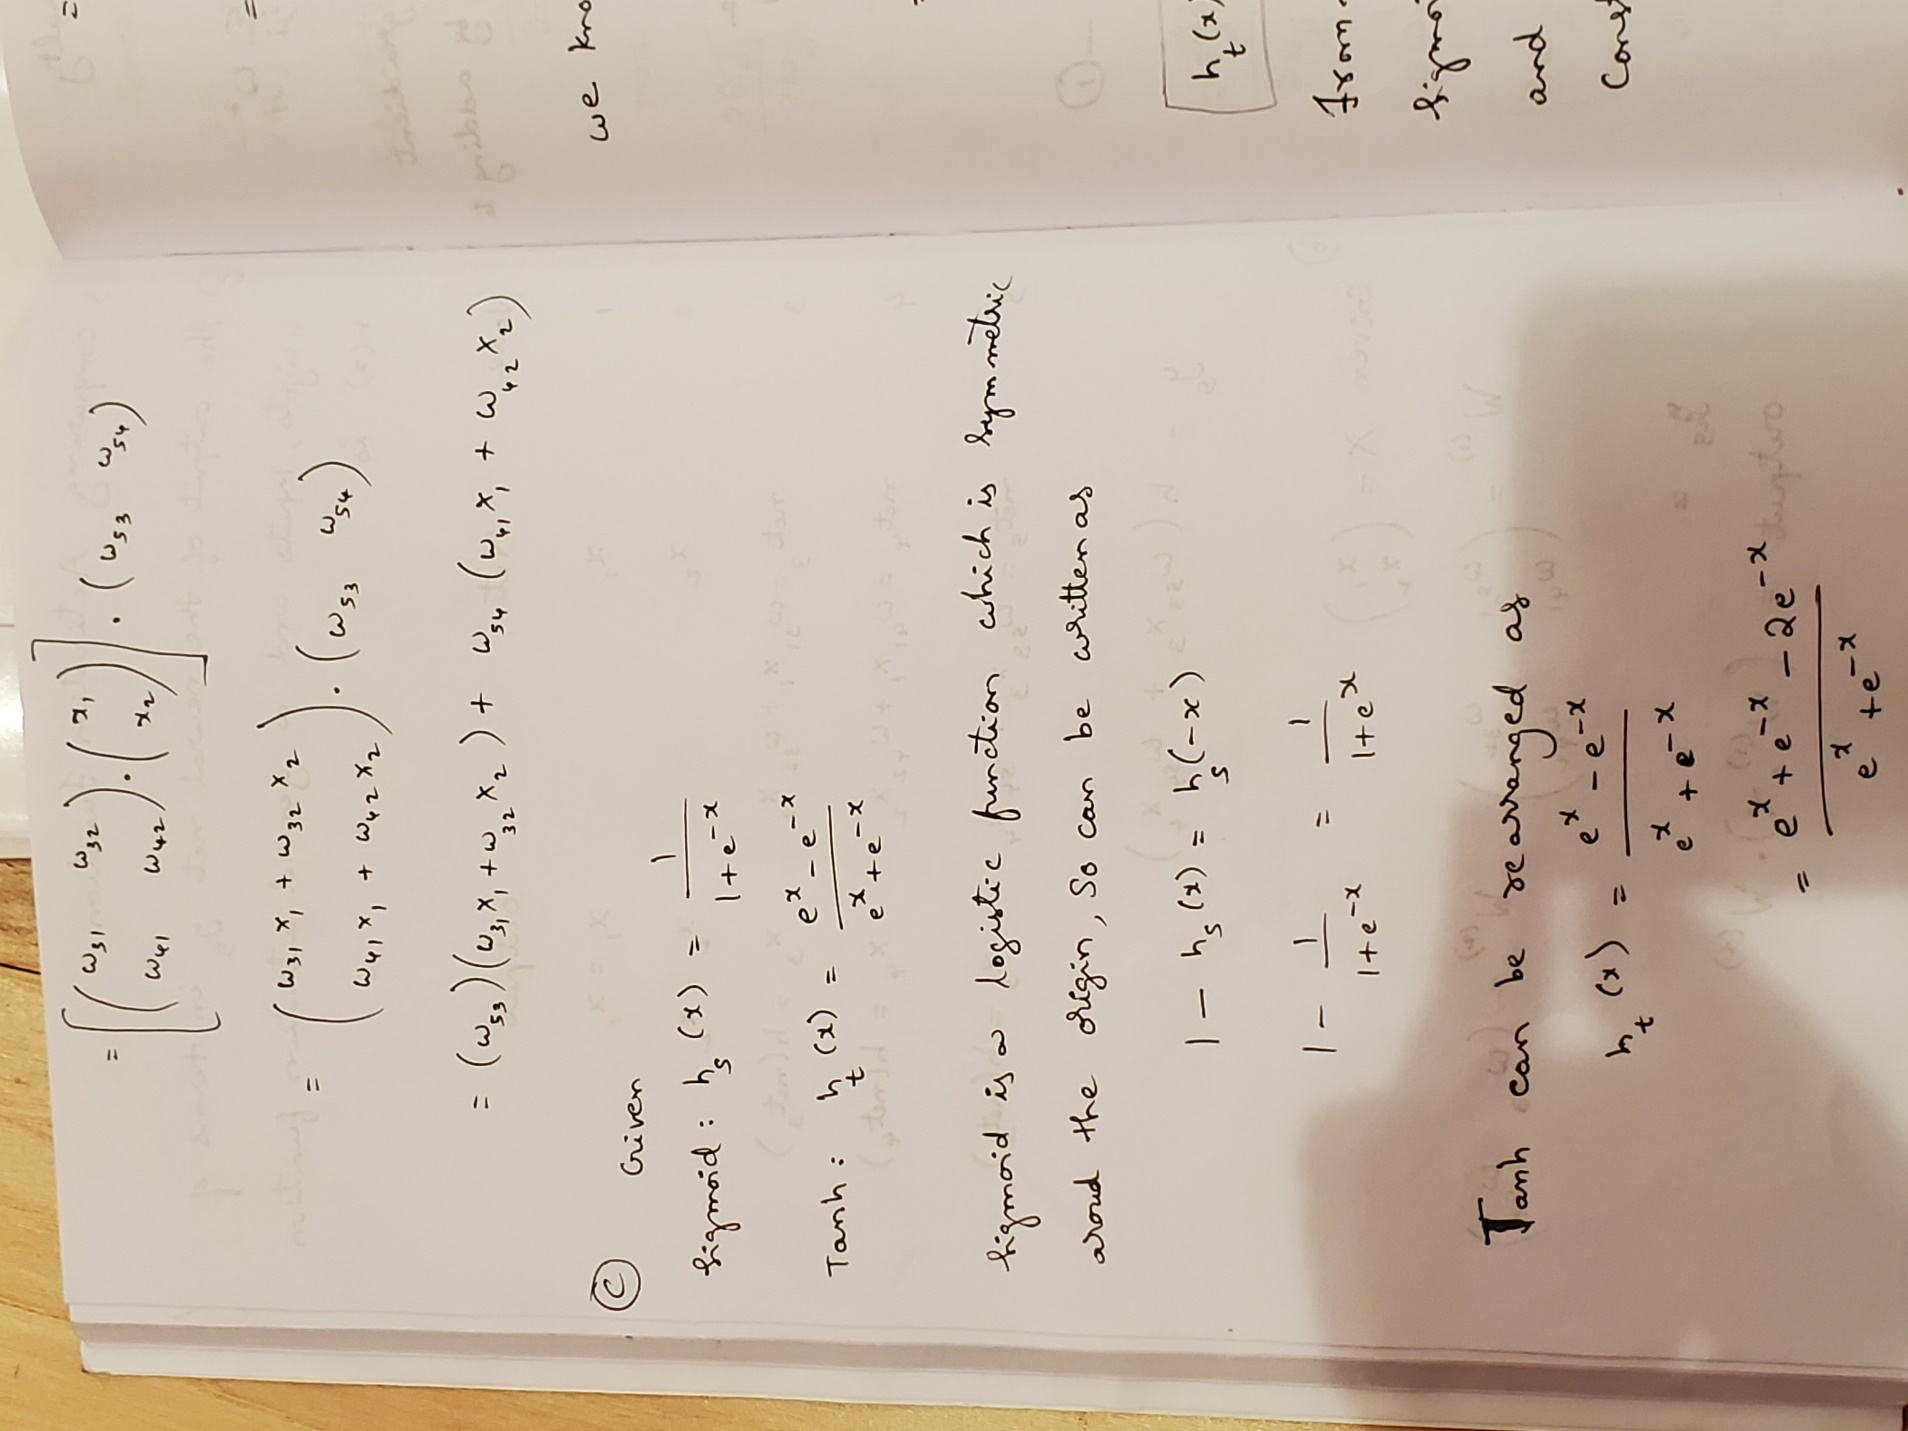 = [(ω31 ω32
ω41 ω42) . (x1
x2)] . (ω53 ω54)
= (ω31 x1 + ω32 x2
ω41 x1 + ω42 x2) . (ω53 ω54)
= (ω53)(ω31 x1 + ω32 x2) + ω54 (ω41 x1 + ω42 x2)
(C) Given
Sigmoid : hs(x) = 1 / (1+e^-x)
Tanh : ht(x) = (e^x - e^-x) / (e^x + e^-x)
Sigmoid is a logistic function which is symmetric
aroud the origin, So can be written as
1 - hs(x) = hs(-x)
1 - 1 / (1+e^-x) = 1 / (1+e^x)
Tanh can be rearranged as
ht(x) = (e^x - e^-x) / (e^x + e^-x)
= (e^x + e^-x - 2e^-x) / (e^x + e^-x)
=
=
we kno
ht(x)
from
and